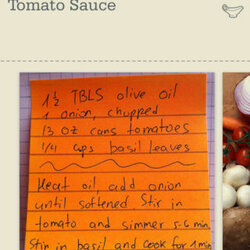 Tomato Sauce
1 1/2 TBLS olive oil
1 onion, chopped
13 oz cans tomatoes
1/4 cups basil leaves
Heat oil, add onion
until softened Stir in
tomato and simmer 5-6 min.
Stir in basil and cook for 1 min